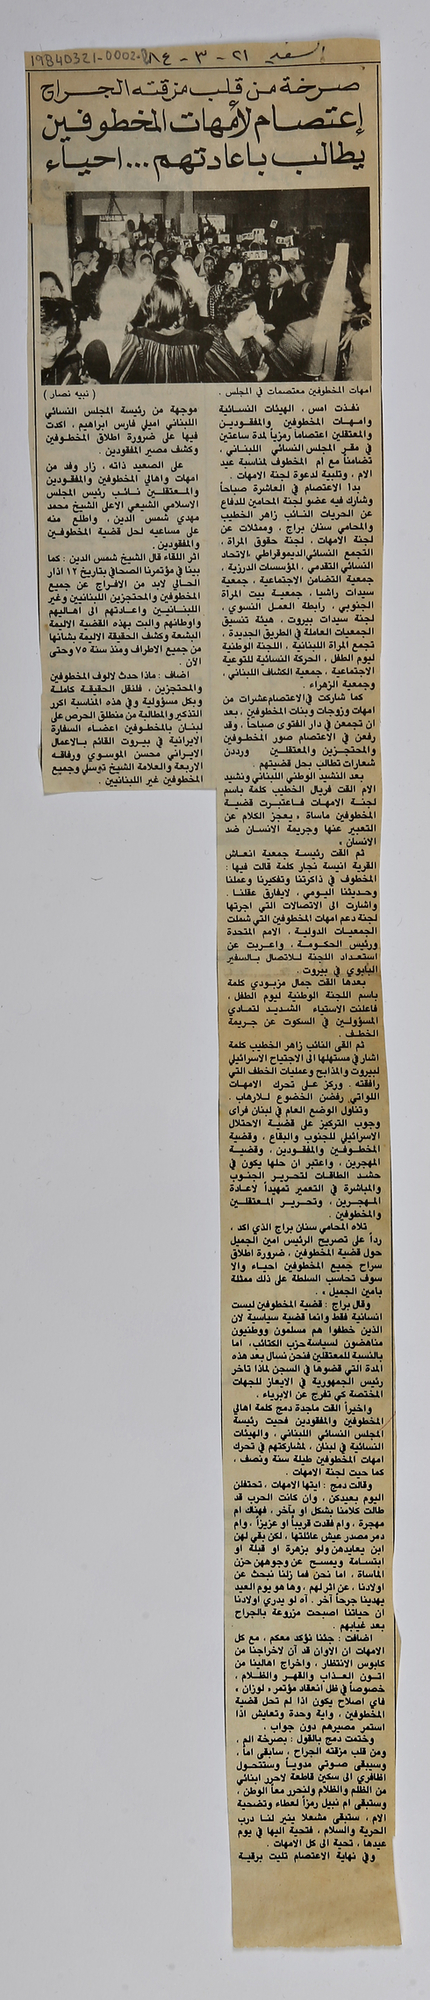 السفير ٢١ - ٣ - ٨٤
19840321-0002
صرخة من قلب مزقته الجراح
إعتصام لأمهات المخطوفين
يطالب باعادتهم ... احياء
امهات المخطوفين معتصمات في المجلس .
( نبيه نصار )
نفذت امس ، الهيئات النسائية
وامهات المخطوفين والمفقودين
والمعتقلين اعتصاماً رمزياً لمدة ساعتين
في مقر المجلس النسائي اللبناني ،
تضامناً مع ام المخطوف لمناسبة عيد
الام ، وتلبية لدعوة لجنة الامهات .
بدا الاعتصام في العاشرة صباحاً
وشارك فيه عضو لجنة المحامين للدفاع
عن الحريات النائب زاهر الخطيب
والمحامي سنان براج ، وممثلات عن
لجنة الامهات ، لجنة حقوق المراة ،
التجمع النسائي الديموقراطي ، الاتحاد
النسائي التقدمي ، المؤسسات الدرزية ،
جمعية التضامن الاجتماعية ، جمعية
سيدات راشيا ، جمعية بيت المراة
الجنوبي ، رابطة العمل النسوي ،
لجنة سيدات بيروت ، هيئة تنسيق
الجمعيات العاملة في الطريق الجديدة ،
تجمع المراة اللبنانية ، اللجنة الوطنية
ليوم الطفل ، الحركة النسائية للتوعية
الاجتماعية ، جمعية الكشاف اللبناني ،
وجمعية الزهراء .
كما شاركت في الاعتصام عشرات من
امهات وزوجات وبنات المخطوفين ، بعد
ان تجمعن في دار الفتوى صباحاً ، وقد
رفعن في الاعتصام صور المخطوفين
والمحتجزين والمعتقلين ورددن
شعارات تطالب بحل قضيتهم .
بعد النشيد الوطني اللبناني ونشيد
الام القت فريال الخطيب كلمة باسم
لجنة الامهات فاعتبرت قضية
المخطوفين ماساة « يعجز الكلام عن
التعبير عنها وجريمة الانسان ضد
الانسان »
ثم القت رئيسة جمعية انعاش
القرية انيسة نجار كلمة قالت فيها :
المخطوف في ذاكرتنا وتفكيرنا وعملنا
وحديثنا اليومي ، لايفارق عقلنا .
واشارت الى الاتصالات التي اجرتها
لجنة دعم امهات المخطوفين التي شملت
الجمعيات الدولية ، الامم المتحدة
ورئيس الحكومة ، واعربت عن
استعداد اللجنة للاتصال بالسفير
البابوي في بيروت .
بعدها القت جمال مزبودي كلمة
باسم اللجنة الوطنية ليوم الطفل ،
فاعلنت الاستياء الشديد لتمادي
المسؤولين في السكوت عن جريمة
الخطف .
ثم القى النائب زاهر الخطيب كلمة
اشار في مستهلها الى الاجتياح الاسرائيلي
لبيروت والمذابح وعمليات الخطف التي
رافقته . وركز على تحرك الامهات
اللواتي رفضن الخضوع للارهاب .
وتناول الوضع العام في لبنان فراى
وجوب التركيز على قضية الاحتلال
الاسرائيلي للجنوب والبقاع ، وقضية
المخطوفين والمفقودين ، وقضية
المهجرين ، واعتبر ان حلها يكون في
حشد الطاقات لتحرير الجنوب
والمباشرة في التعمير تمهيداً لاعادة
المهجرين ، وتحرير المعتقلين
والمخطوفين .
تلاه المحامي سنان براج الذي اكد ،
رداً على تصريح الرئيس امين الجميل
حول قضية المخطوفين ، ضرورة اطلاق
سراح جميع المخطوفين احياء والا
سوف تحاسب السلطة على ذلك ممثلة
بامين الجميل » .
وقال براج : قضية المخطوفين ليست
انسانية فقط وانما قضية سياسية لان
الذين خطفوا هم مسلمون ووطنيون
مناهضون لسياسة حزب الكتائب ، اما
بالنسبة للمعتقلين فنحن نسال بعد هذه
المدة التي قضوها في السجن لماذا تاخر
رئيس الجمهورية في الايعاز للجهات
المختصة كي تفرج عن الابرياء .
واخيراً القت ماجدة دمج كلمة اهالي
المخطوفين والمفقودين فحيت رئيسة
المجلس النسائي اللبناني ، والهيئات
النسائية في لبنان ، لمشاركتهم في تحرك
امهات المخطوفين طيلة سنة ونصف ،
كما حيت لجنة الامهات .
وقالت دمج : ايتها الامهات ، تحتفلن
اليوم بعيدكن ، وان كانت الحرب قد
طالت كلامنا بشكل او باخر ، فهناك ام
مهجرة ، وام فقدت قريباً او عزيزاً ، وام
دمر مصدر عيش عائلتها ، لكن بقي لهن
ابن يعايدهن ولو بزهرة او قبلة او
ابتسامة ويمسح عن وجوههن حزن
الماساة ، اما نحن فما زلنا نبحث عن
اولادنا ، عن اثر لهم ، وها هو يوم العيد
يهدينا جرحاً آخر . آه لو يدري اولادنا
ان حياتنا اصبحت مزروعة بالجراح
بعد غيابهم .
اضافت : جئنا نؤكد معكم ، مع كل
الامهات ان الاوان قد آن لاخراجنا من
كابوس الانتظار ، واخراج اهالينا من
اتون العذاب والقهر والظلام ،
خصوصاً في ظل انعقاد مؤتمر « لوزان »
فاي اصلاح يكون اذا لم تحل قضية
المخطوفين ، واية وحدة وتعايش اذا
استمر مصيرهم دون جواب .
وختمت دمج بالقول : بصرخة الم ،
ومن قلب مزقته الجراح ، سابقى اماً ،
وسيبقى صوتي مدوياً وستتحول
اظافري الى سكين قاطعة لاحرر ابنائي
من الظلم والظلام ولنحرر معاً الوطن ،
وستبقى ام نبيل رمزاً لعطاء وتضحية
الام ، ستبقى مشعلا ينير لنا درب
الحرية والسلام ، فتحية اليها في يوم
عيدها ، تحية الى كل الامهات .
وفي نهاية الاعتصام تليت برقية
موجهة من رئيسة المجلس النسائي
اللبناني اميلي فارس ابراهيم ، اكدت
فيها على ضرورة اطلاق المخطوفين
وكشف مصير المفقودين .
على الصعيد ذاته ، زار وفد من
امهات واهالي المخطوفين والمفقودين
والمعتقلين نائب رئيس المجلس
الاسلامي الشيعي الاعلى الشيخ محمد
مهدي شمس الدين ، واطلع منه
على مساعيه لحل قضية المخطوفين
والمفقودين .
اثر اللقاء قال الشيخ شمس الدين : كما
بينا في مؤتمرنا الصحافي بتاريخ ١٢ اذار
الحالي لابد من الافراج عن جميع
المخطوفين والمحتجزين اللبنانيين وغير
اللبنانيين واعادتهم الى اهاليهم
واوطانهم والبت بهذه القضية الاليمة
البشعة وكشف الحقيقة الاليمة بشانها
من جميع الاطراف ومنذ سنة ٧٥ وحتى
الآن .
اضاف : ماذا حدث لالوف المخطوفين
والمحتجزين ، فلنقل الحقيقة كاملة
وبكل مسؤولية وفي هذه المناسبة اكرر
التذكير والمطالبة من منطلق الحرص على
لبنان بالمخطوفين اعضاء السفارة
الايرانية في بيروت القائم بالاعمال
الايراني محسن الموسوي ورفاقه
الاربعة والعلامة الشيخ توسلي وجميع
المخطوفين غير اللبنانيين .